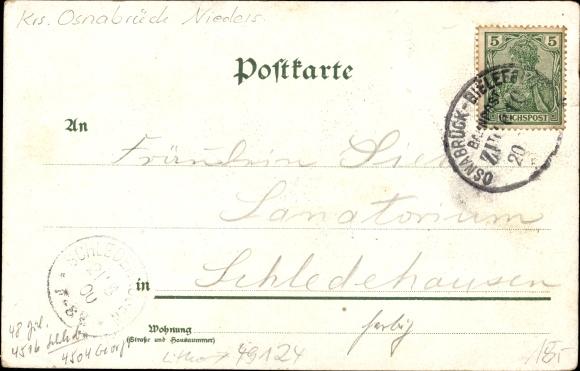 Krs. Osnabrück Nieders.
Postkarte
5 5
REICHSPOST
OSNABRÜCK-BIELEFE
BAHNPOST
ZUG
20
An
Fräulein
Sanatorium
in Schledehausen
SCHLEDEHAUSEN
21 8
00
Wohnung
(Straße und Hausnummer)
farbig
48
4516
4504 Georg
Litho 49124
18,-